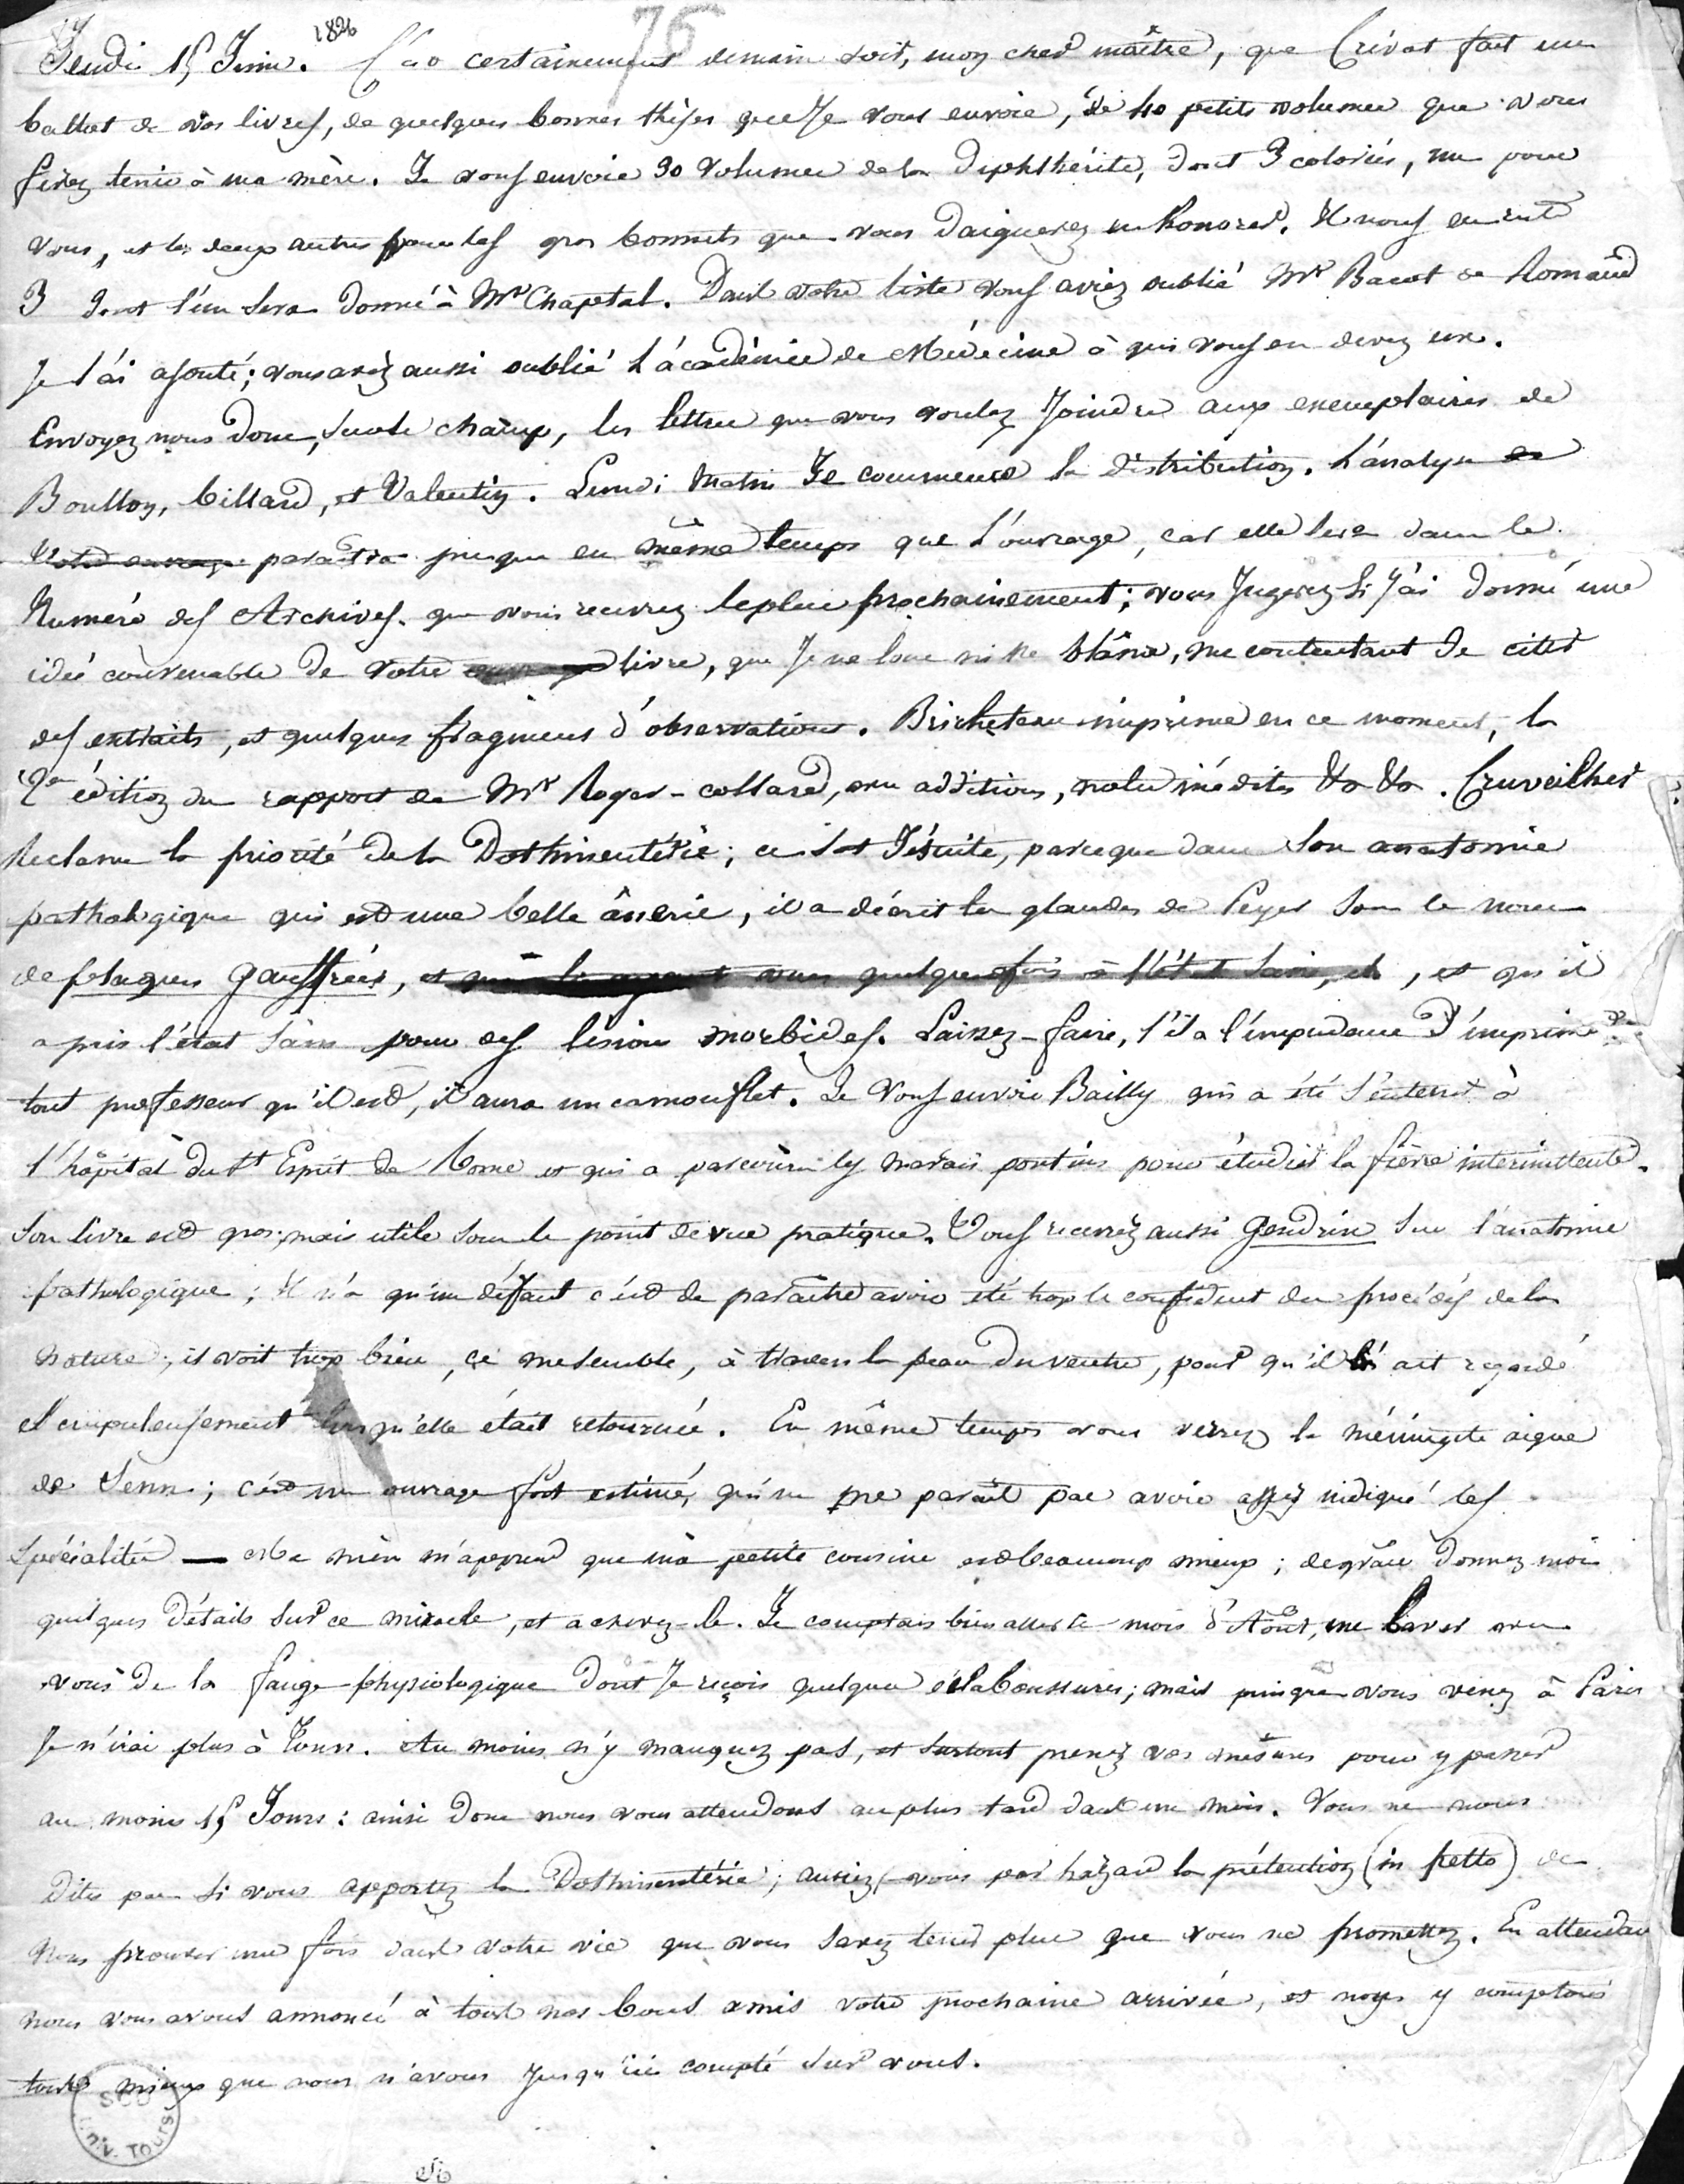 1826
76
Jeudi 15 Juin. C'est certainement demain soir, mon cher maître, que Crevot fait un
ballot de vos livres, de quelques bonnes thèses que Je vous envoie, de 40 petits volumes que vous
ferez tenir à ma mère. Je vous envoie 30 volumes de la Diphthérite, dont 3 coloriés, un pour
vous, et les deux autres pour les gros bonnets que vous daignerez en honorer. Il nous en reste
3 dont l'un sera donné à Mr Chaptal. Dans votre liste vous aviez oublié Mr Bacot de Romand
Je l'ai ajouté; vous aviez aussi oublié l'académie de Médecine à qui vous en devez un.
Envoyez nous donc, sur le champ, les lettres que vous voulez Joindre aux exemplaires de
Boullon, billard, et Valentin. Lundi matin Je commence la distribution. L'analyse de
votre ouvrage paraîtra presque en même temps que l'ouvrage, car elle sera dans le
Numéro des Archives que vous recevrez le plus prochainement; vous Jugerez si J'ai donné une
idée convenable de votre ouvrage livre, que Je ne loue ni ne blâme, me contentant de citer
des extraits, et quelques fragmens d'observations. Bricheteau imprime en ce moment, la
2e édition du rapport de Mr Royer-collard, avec additions, notes inédites &a &a. Cruveilher
Reclame la priorité de la Dothinenterie; ce sot Jésuite, parceque dans son anatomie
pathologique qui est une belle ânerie, il a décrit les glandes de Peyer sous le nom
de plaques gauffrées, et quelquefois à l'état sain, et, et qu'il
a pris l'état sain pour des lésions morbides. Laissez-faire, s'il a l'impudence d'imprimer
tout professeur qu'il est, il aura un camouflet. Je vous envoie Bailly qui a été s'enterrer à
l'hôpital du St Esprit de Rome et qui a parcouru les marais pontins pour étudier la fièvre intermittente.
Son livre est gros; mais utile sous le point de vue pratique. Vous recevrez aussi Gendrin sur l'anatomie
pathologique; il n'a qu'un défaut c'est de paraître avoir été trop le confident des procédés de la
nature; il voit trop bien, ce me semble, à travers la peau du ventre, pour qu'il l'ait regardé
scrupuleusement lorsqu'elle était retournée. En même temps vous verrez la méningite aigue
de Senn; c'est un ouvrage fort estimé, qui ne me parait pas avoir assez indiqué les
spécialités — Ma mère m'apprend que ma petite cousine est beaucoup mieux; de grâce donnez moi
quelques détails sur ce miracle, et achevez-le. Je comptais bien aller le mois d'Août, me laver avec
vous de la fange physiologique dont Je reçois quelques éclaboussures; mais puisque vous venez à Paris
Je n'irai plus à Tours. Au moins n'y manquez pas, et surtout prenez vos mesures pour y passer
au moins 15 Jours: ainsi donc nous vous attendons au plus tard dans un mois. Vous ne nous
dites pas si vous apportez la Dothinentérie; auriez-vous par hazard la prétention (in petto) de
nous prouver une fois dans votre vie que vous savez tenir plus que vous ne promettez. En attendant
nous vous avons annoncé à tous nos bons amis votre prochaine arrivée, et nous y comptons
tous mieux que nous n'avons Jusqu'ici compté sur vous.
SCD
Univ. TOURS